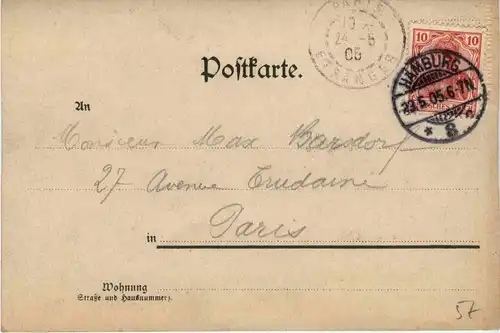 PARIS
24 -5
05
ETRANGER
10 10
HAMBURG
23.5.05.6-7N.
* 8 n
Postkarte.
An
Monsieur Max Barsdorf
27 Avenue Trudaine
Paris
in
Wohnung
Straße und Hausnummer).
57